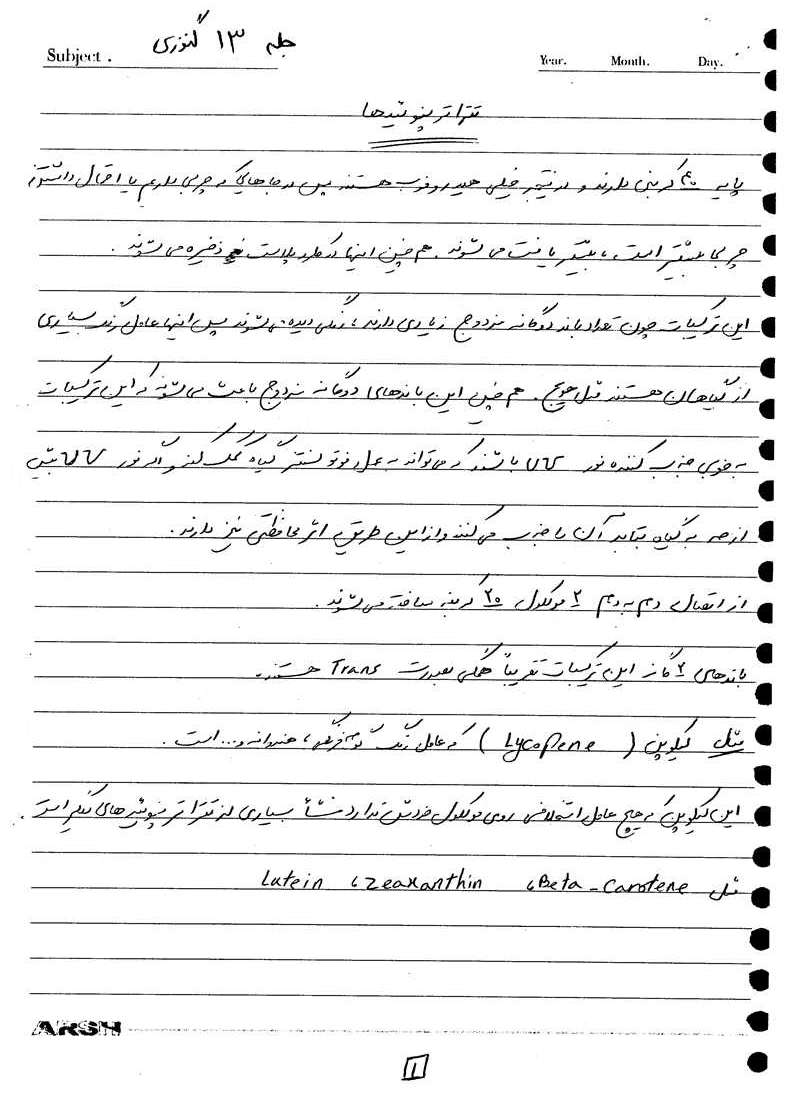 Subject . جلسه ۱۳ گنوزی
Year. Month. Day.
تتراترپنوئیدها
پایه ۴۰ کربنی دارند و در نتیجه خیلی هیدروفوب هستند پس در جاهایی که چربی داریم یا احتمال داشتن
چربی بیشتر است، بیشتر یافت می شوند. هم چنین اینها در کلروپلاست ذخیره می شوند.
این ترکیبات چون تعداد باند دوگانه مزدوج زیادی دارند، رنگی دیده می شوند پس اینها عامل رنگ بسیاری
از گیاهان هستند مثل هویج. هم چنین این باندهای دوگانه مزدوج باعث می شوند که این ترکیبات
به خوبی جذب کننده نور UV باشند که می تواند به عمل فوتوسنتز گیاه کمک کند و اگر نور UV بیش
از حد به گیاه بتابد آن را جذب می کنند و از این طریق اثر محافظتی نیز دارند.
از اتصال دم به دم ۲ مولکول ۲۰ کربنه ساخته می شوند.
باندهای ۲ گانه این ترکیبات تقریباً همگی بصورت Trans هستند.
مثل لیکوپن (Lycopene) که عامل رنگ گوجه فرنگی، هندوانه و... است.
این لیکوپن که هیچ عامل استخلافی روی مولکول خودش ندارد منشأ بسیاری از تتراترپنوئیدهای دیگر است.
مثل Beta-Carotene، Zeaxanthin، Lutein
ARSH
1